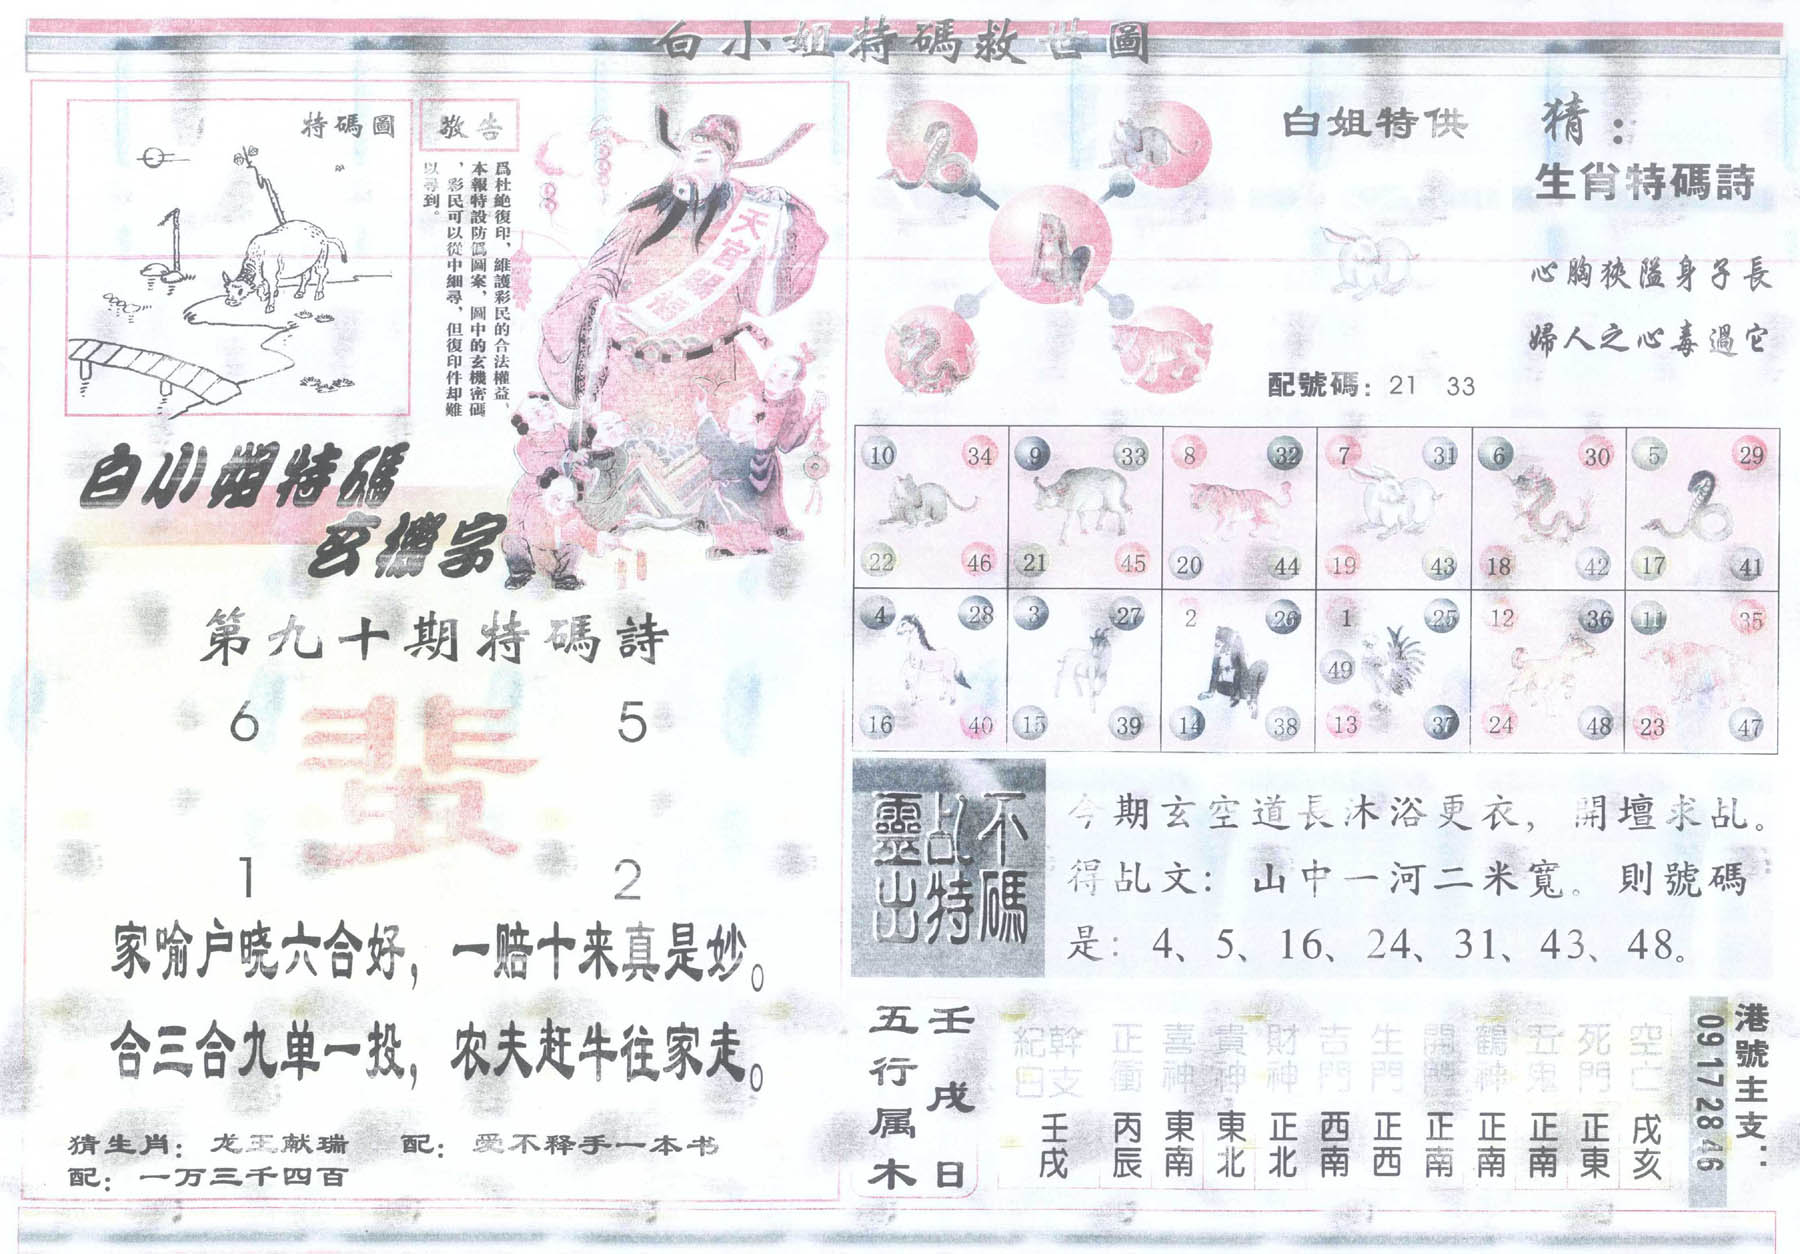 白小姐特碼救世圖
特碼圖
敬告
爲杜絶復印、維護彩民的合法權益、
本報特設防僞圖案，圖中的玄機密碼
，彩民可以從中細尋，但復印件却難
以尋到。
白小姐特碼
玄機字
第九十期特碼詩
6 5
1 2
家喻户晓六合好，一赔十来真是妙。
合三合九单一投，农夫赶牛往家走。
猜生肖：龙王献瑞 配：爱不释手一本书
配：一万三千四百
白姐特供
猜：
生肖特碼詩
心胸狹隘身子長
婦人之心毒過它
配號碼：21 33
10 34 9 33 8 32 7 31 6 30 5 29
22 46 21 45 20 44 19 43 18 42 17 41
4 28 3 27 2 26 1 25 12 36 11 35
49
16 40 15 39 14 38 13 37 24 48 23 47
不碼
乩特
靈出
今期玄空道長沐浴更衣，開壇求乩。
得乩文：山中一河二米寬。則號碼
是：4、5、16、24、31、43、48。
壬戌日
五行属木
幹支紀日 正衝 喜神 貴神 財神 吉門 生門 開門 鶴神 五鬼 死門 空亡
壬戌 丙辰 東南 東北 正北 西南 正西 正南 正南 正南 正東 戌亥
港號主支：
09 17 28 46